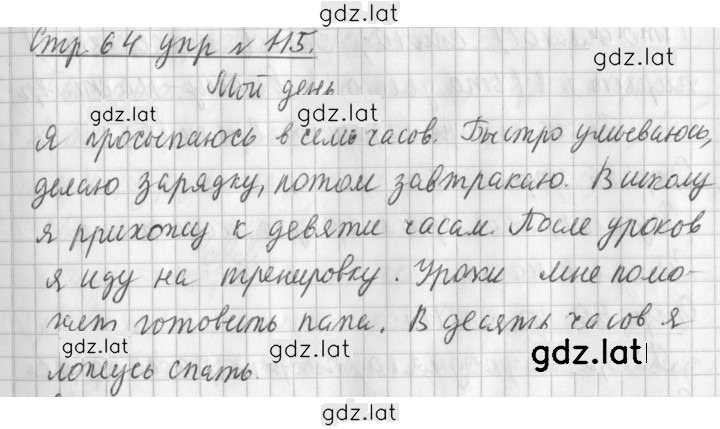 gdz.lat
Стр 64 упр № 115.
gdz.lat
Мой день
gdz.lat
gdz.lat
Я просыпаюсь в семь часов. Быстро умываюсь,
делаю зарядку, потом завтракаю. В школу
я прихожу к девяти часам. После уроков
я иду на тренировку. Уроки мне помо-
гает готовить папа. В десять часов я
gdz.lat
gdz.lat
gdz.lat
ложусь спать.
gdz.lat